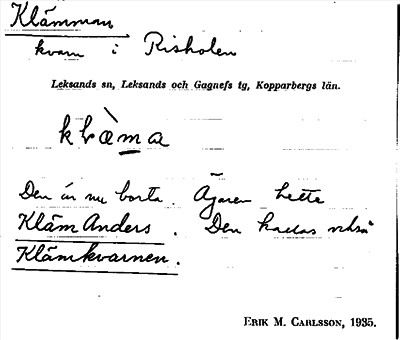 Klämman
kvarn i Risholen
Leksands sn, Leksands och Gagnefs tg, Kopparbergs län.
klæ̀ma
Den är nu borta. Ägaren hette
Kläm Anders. Den kallas också
Klämkvarnen.
ERIK M. CARLSSON, 1935.